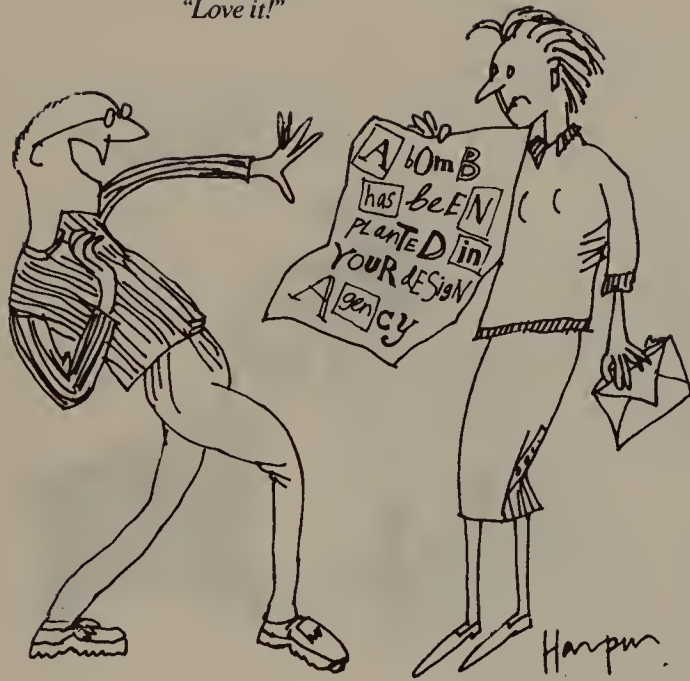 "Love it!"
A bOmB
has beEN
PLanTED in
YOUR dESigN
Agency
Harpur.